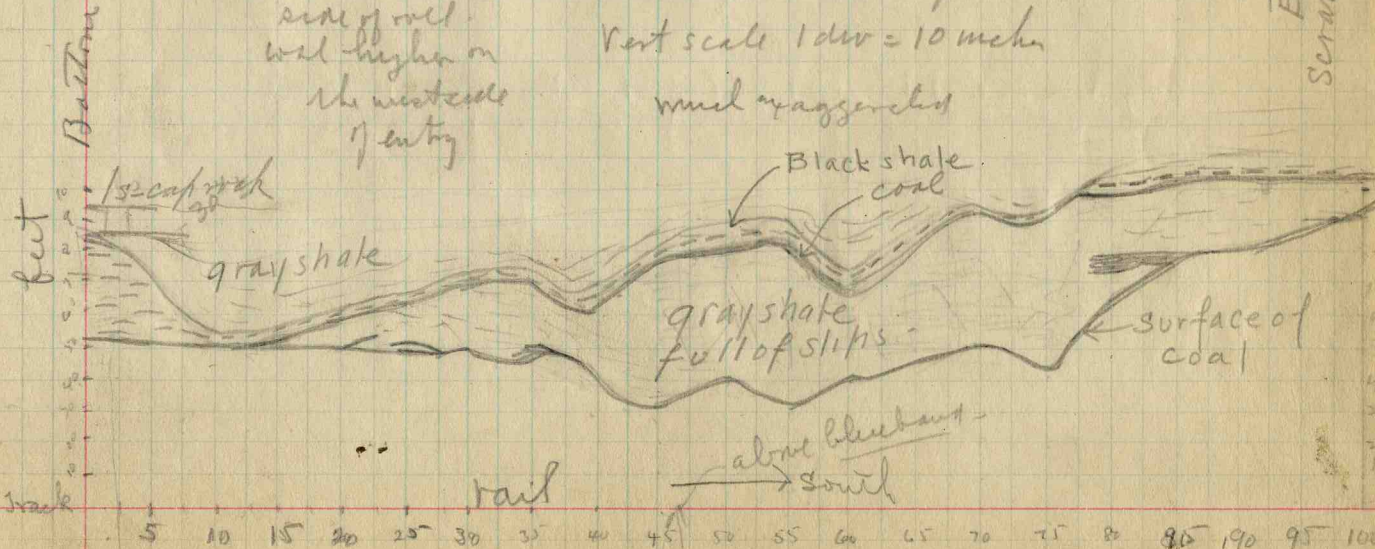 side of roll
coal higher on
the west side
of entry
Vert scale 1 div = 10 inches
much exaggerated
Bottom
feet
1s= cap rock
gray shale
Black shale
coal
gray shale
full of slips
surface of
coal
above blueband
South
rail
Track
5 10 15 20 25 30 35 40 45 50 55 60 65 70 75 80 85 90 95 100